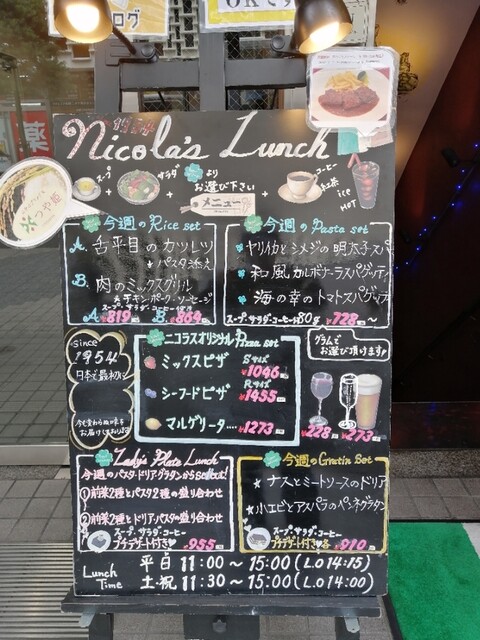 ログ
OKです
薬
Nicola's Lunch
スープ + サラダ + より
お選び下さい + コーヒー
紅茶
ice
HOT
メニュー
つや姫
今週の Rice set
A. 舌平目のカツレツ
*パスタ添え
B. 肉のミックスグリル
*チキン・ポーク・ソーセージ
スープ・サラダ・コーヒー付
A ¥819 B ¥864
今週の Pasta set
ヤリイカとシメジの明太子スパ
和風カルボナーラスパゲッティ
海の幸のトマトスパゲッティ
スープ・サラダ・コーヒー付 80g ¥728 ~
since
1954
日本で最初に
今も変わらぬ味を
お届けしております
ニコラスオリジナル Pizza set
ミックスピザ Sサイズ
¥1046
シーフードピザ Rサイズ
¥1455
マルゲリータ.... ¥1273
グラムで
お選び頂けます
¥228 ¥273
Lady's Plate Lunch
今週のパスタ・ドリア・グラタンからselect!
① 前菜2種とパスタ2種の盛り合わせ
② 前菜2種とドリア・パスタの盛り合わせ
スープ・サラダ・コーヒー
プチデザート付き ¥955
今週の Gratin Set
★ ナスとミートソースのドリア
★ 小エビとアスパラのペンネグラタン
スープ・サラダ・コーヒー
プチデザート付き ¥910
Lunch Time
平日 11:00～15:00 (L.O 14:15)
土・祝 11:30～15:00 (L.O 14:30)